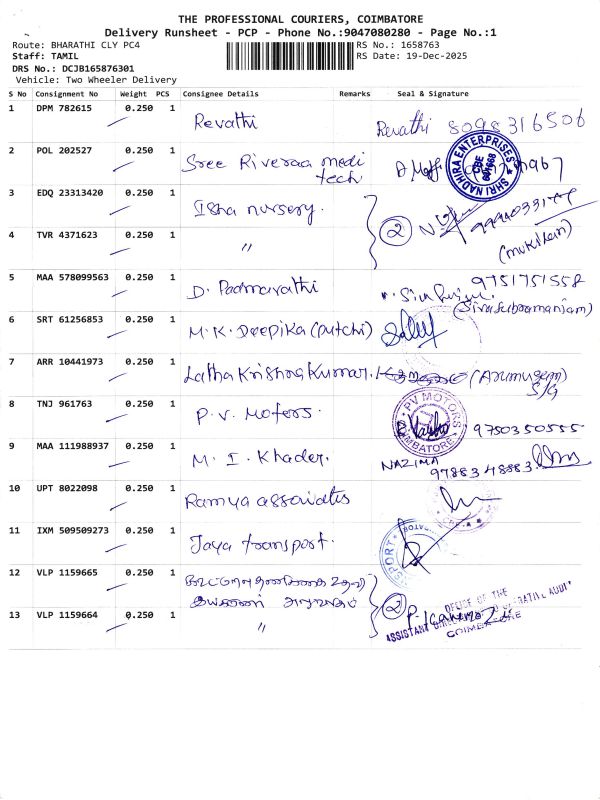 THE PROFESSIONAL COURIERS, COIMBATORE
Delivery Runsheet - PCP - Phone No.:9047080280 - Page No.:1
Route: BHARATHI CLY PC4 RS No.: 1658763
Staff: TAMIL RS Date: 19-Dec-2025
DRS No.: DCJB165876301
Vehicle: Two Wheeler Delivery
S No Consignment No Weight PCS Consignee Details Remarks Seal & Signature
1 DPM 782615 0.250 1 Revathi Revathi 8098316506
2 POL 202527 0.250 1 Sree Riveraa medi tech
SHRI NADHIRA ENTERPRISES CBE
3 EDQ 23313420 0.250 1 Isha nursery. 2
4 TVR 4371623 0.250 1 "
(mukilan)
5 MAA 578099563 0.250 1 D. Padmavathi 9751751558
(Sivasubramaniam)
6 SRT 61256853 0.250 1 M.K. Deepika (Dutchi)
7 ARR 10441973 0.250 1 Latha Krishna Kumar. (Arumugam) S/G
8 TNJ 961763 0.250 1 P.V. Motors. 9750350555
PV MOTORS COIMBATORE
9 MAA 111988937 0.250 1 M. I. Khader. NAZIMA 9788348883
10 UPT 8022098 0.250 1 Ramya associates
11 IXM 509509273 0.250 1 Jaya transport.
12 VLP 1159665 0.250 1
13 VLP 1159664 0.250 1 " 2
OFFICE OF THE
ASSISTANT
COIMBATORE